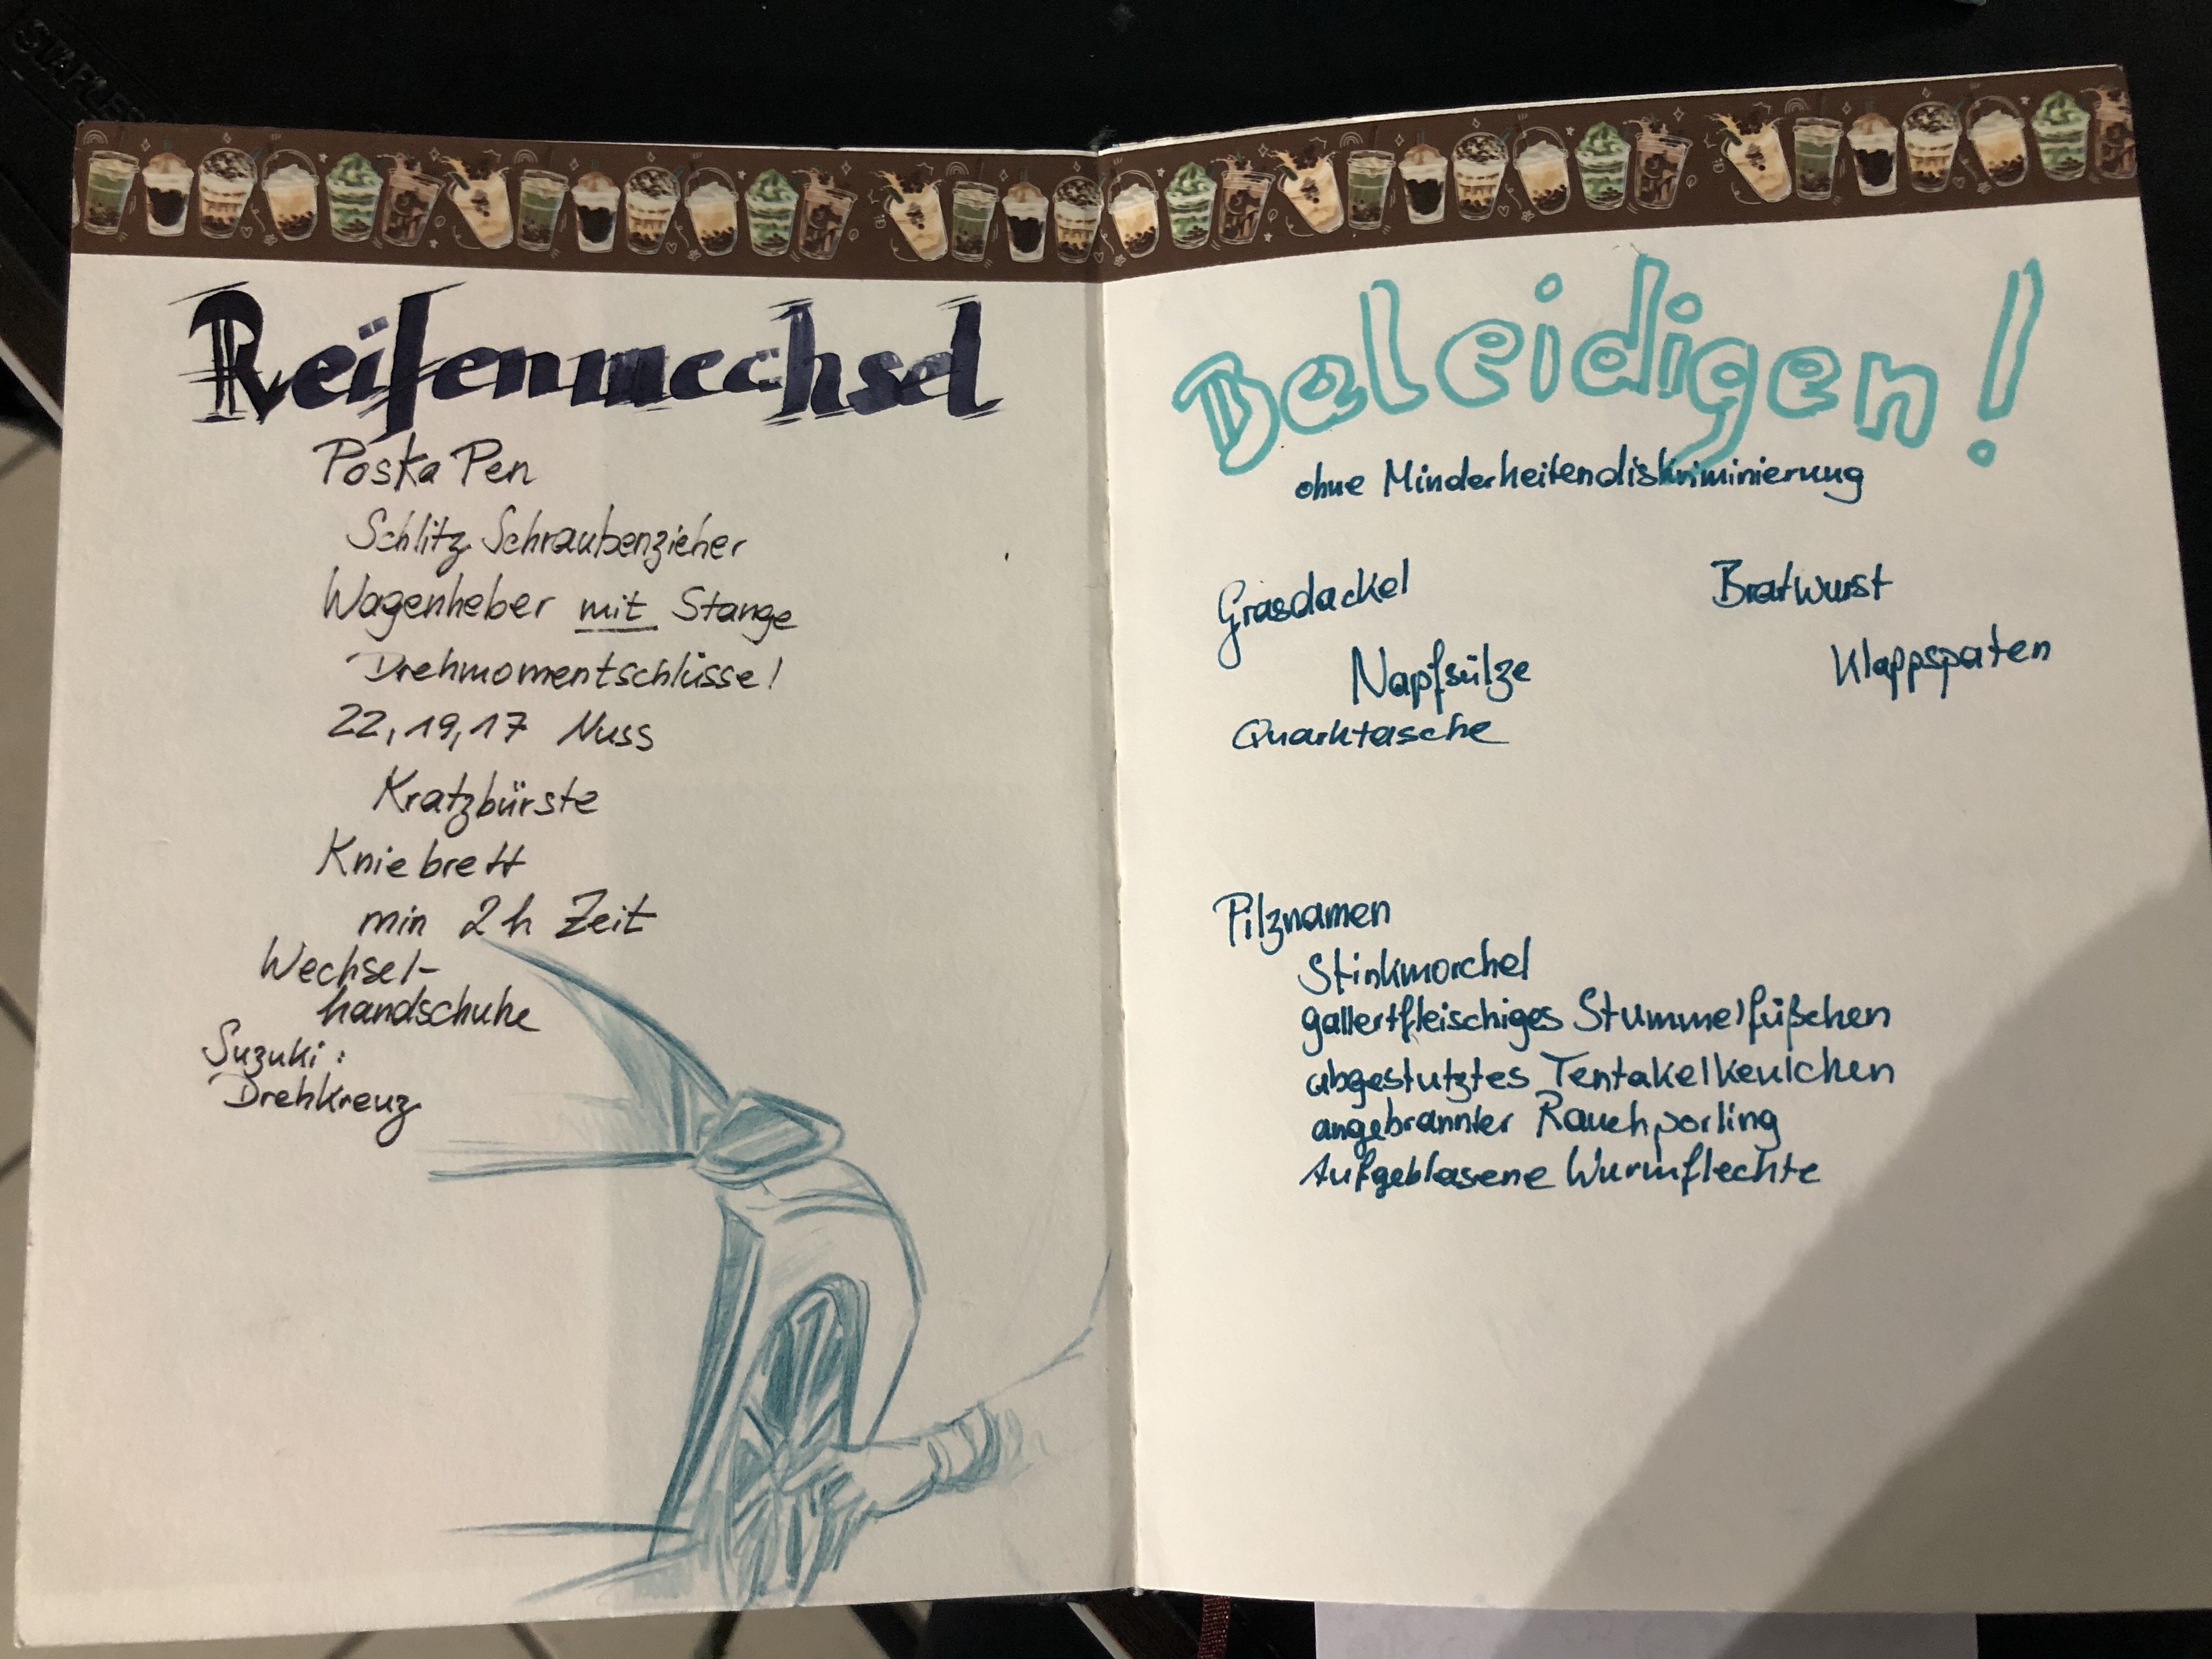 STAPLES
Reifenwechsel
Poska Pen
Schlitz Schraubenzieher
Wagenheber mit Stange
Drehmomentschlüsse!
22, 19, 17 Nuss
Kratzbürste
Kniebrett
min 2h Zeit
Wechsel-
handschuhe
Suzuki:
Drehkreuz
Beleidigen!
ohne Minderheitendiskriminierung
Grasdackel
Bratwurst
Napfsülze
Klappspaten
Quarktasche
Pilznamen
Stinkmorchel
gallertfleischiges Stummelfüßchen
abgestutztes Tentakelkeulchen
angebrannter Rauchporling
Aufgeblasene Wurmflechte